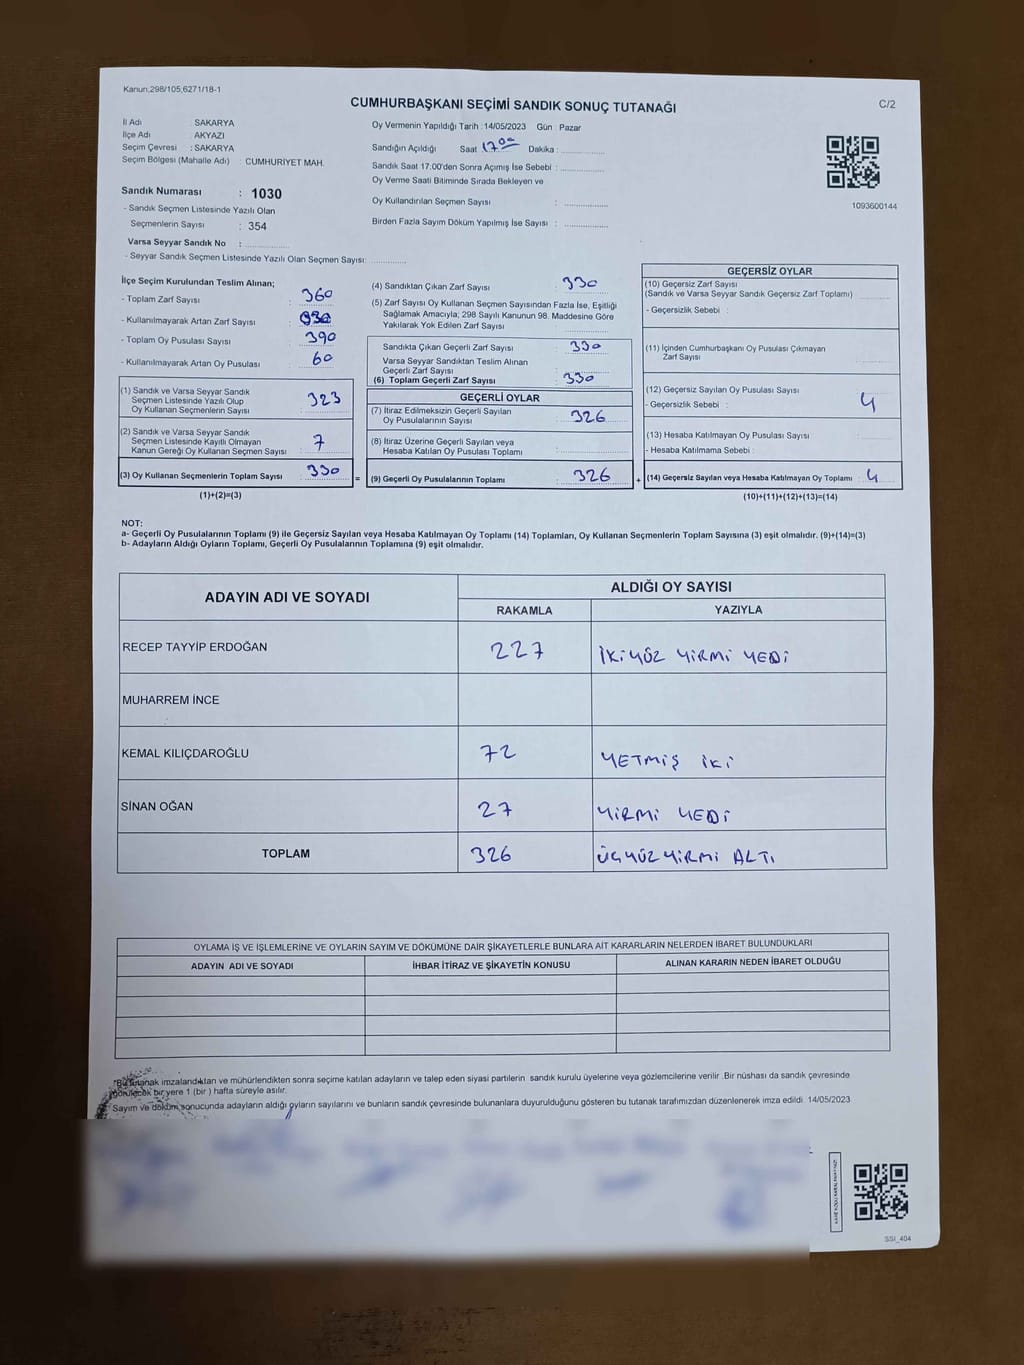 Kanun.298/105,6271/18-1
CUMHURBAŞKANI SEÇİMİ SANDIK SONUÇ TUTANAĞI
C/2
İl Adı SAKARYA
İlçe Adı AKYAZI
Seçim Çevresi : SAKARYA
Seçim Bölgesi (Mahalle Adı) : CUMHURİYET MAH.
Sandık Numarası : 1030
- Sandık Seçmen Listesinde Yazılı Olan
Seçmenlerin Sayısı : 354
Varsa Seyyar Sandık No :
- Seyyar Sandık Seçmen Listesinde Yazılı Olan Seçmen Sayısı:
Oy Vermenin Yapıldığı Tarih :14/05/2023 Gün : Pazar
Sandığın Açıldığı Saat 17.00 Dakika :
Sandık Saat 17:00'den Sonra Açımış İse Sebebi :
Oy Verme Saati Bitiminde Sırada Bekleyen ve
Oy Kullandırılan Seçmen Sayısı :
Birden Fazla Sayım Döküm Yapılmış İse Sayısı :
1093600144
İlçe Seçim Kurulundan Teslim Alınan;
- Toplam Zarf Sayısı : 360
- Kullanılmayarak Artan Zarf Sayısı :
- Toplam Oy Pusulası Sayısı : 390
- Kullanılmayarak Artan Oy Pusulası : 60
(1) Sandık ve Varsa Seyyar Sandık
Seçmen Listesinde Yazılı Olup
Oy Kullanan Seçmenlerin Sayısı : 323
(2) Sandık ve Varsa Seyyar Sandık
Seçmen Listesinde Kayıtlı Olmayan
Kanun Gereği Oy Kullanan Seçmen Sayısı : 7
(3) Oy Kullanan Seçmenlerin Toplam Sayısı : 330
(1)+(2)=(3)
(4) Sandıktan Çıkan Zarf Sayısı : 330
(5) Zarf Sayısı Oy Kullanan Seçmen Sayısından Fazla İse, Eşitliği
Sağlamak Amacıyla; 298 Sayılı Kanunun 98. Maddesine Göre
Yakılarak Yok Edilen Zarf Sayısı
Sandıkta Çıkan Geçerli Zarf Sayısı : 330
Varsa Seyyar Sandıktan Teslim Alınan
Geçerli Zarf Sayısı
(6) Toplam Geçerli Zarf Sayısı : 330
GEÇERLİ OYLAR
(7) İtiraz Edilmeksizin Geçerli Sayılan
Oy Pusulalarının Sayısı : 326
(8) İtiraz Üzerine Geçerli Sayılan veya
Hesaba Katılan Oy Pusulası Toplamı :
= (9) Geçerli Oy Pusulalarının Toplamı : 326
GEÇERSİZ OYLAR
(10) Geçersiz Zarf Sayısı
(Sandık ve Varsa Seyyar Sandık Geçersiz Zarf Toplamı)
- Geçersizlik Sebebi :
(11) İçinden Cumhurbaşkanı Oy Pusulası Çıkmayan
Zarf Sayısı
(12) Geçersiz Sayılan Oy Pusulası Sayısı
- Geçersizlik Sebebi : 4
(13) Hesaba Katılmayan Oy Pusulası Sayısı
- Hesaba Katılmama Sebebi :
+ (14) Geçersiz Sayılan veya Hesaba Katılmayan Oy Toplamı : 4
(10)+(11)+(12)+(13)=(14)
NOT:
a- Geçerli Oy Pusulalarının Toplamı (9) ile Geçersiz Sayılan veya Hesaba Katılmayan Oy Toplamı (14) Toplamları, Oy Kullanan Seçmenlerin Toplam Sayısına (3) eşit olmalıdır. (9)+(14)=(3)
b- Adayların Aldığı Oyların Toplamı, Geçerli Oy Pusulalarının Toplamına (9) eşit olmalıdır.
ADAYIN ADI VE SOYADI
ALDIĞI OY SAYISI
RAKAMLA YAZIYLA
RECEP TAYYİP ERDOĞAN 227 İKİYÜZ YİRMİ YEDİ
MUHARREM İNCE
KEMAL KILIÇDAROĞLU 72 YETMİŞ İKİ
SİNAN OĞAN 27 YİRMİ YEDİ
TOPLAM 326 ÜÇYÜZ YİRMİ ALTI
OYLAMA İŞ VE İŞLEMLERİNE VE OYLARIN SAYIM VE DÖKÜMÜNE DAİR ŞİKAYETLERLE BUNLARA AİT KARARLARIN NELERDEN İBARET BULUNDUKLARI
ADAYIN ADI VE SOYADI İHBAR İTİRAZ VE ŞİKAYETİN KONUSU ALINAN KARARIN NEDEN İBARET OLDUĞU
*Bu tutanak imzalandıktan ve mühürlendikten sonra seçime katılan adayların ve talep eden siyasi partilerin sandık kurulu üyelerine veya gözlemcilerine verilir .Bir nüshası da sandık çevresinde
görülecek bir yere 1 (bir ) hafta süreyle asılır.
Sayım ve döküm sonucunda adayların aldığı oyların sayılarını ve bunların sandık çevresinde bulunanlara duyurulduğunu gösteren bu tutanak tarafımızdan düzenlenerek imza edildi 14/05/2023
SSI_404